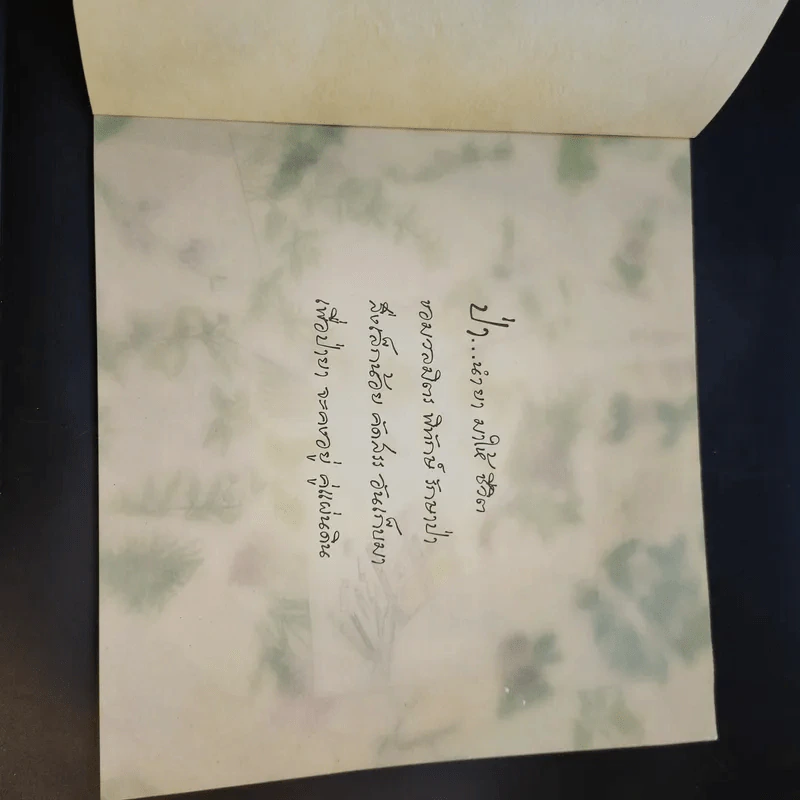 ป่า...นำยา มาให้ ชีวิต
ขอมวลมิตร พิทักษ์ รักษาป่า
สิ่งเล็กน้อย คัดสรร อันเก็บมา
เพื่อป่ายา จะคงอยู่ คู่แผ่นดิน